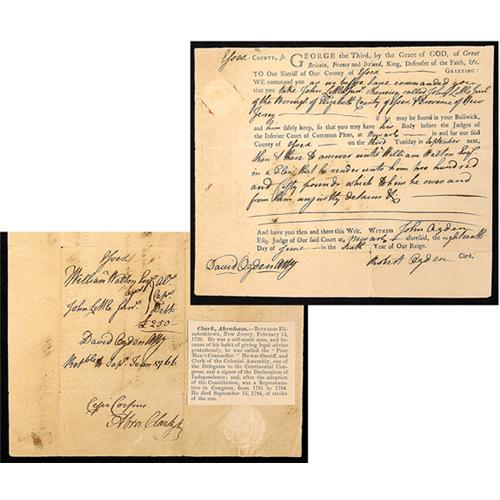 Essex
COUNTY, ss. GEORGE the Third, by the Grace of GOD, of Great
Britain, France and Ireland, King, Defender of the Faith, &c.
TO Our Sheriff of Our County of Essex GREETING:
WE command you as before we have commanded you
that you take John Little Junr otherwise called John Little Junr
of the Borough of Elizabeth County of Essex & Province of New
Jersey if he may be found in your Bailiwick,
and him safely keep, so that you may have his Body before the Judges of
the Inferior Court of Common Pleas, at Newark in and for our said
County of Essex on the third Tuesday in September next,
then & there to answer unto William Watson Esqr
in a Plea that he render unto him two hundred
and fifty pounds which to him he owes and
from him unjustly detains &c
And have you then and there this Writ. WITNESS John Ogden
Esq. Judge of Our said Court at Newark aforesaid, the eighteenth
Day of June in the Sixth Year of Our Reign.
David Ogden Atty Robert Ogden Clerk.
Essex
William Watson Esqr
John Little Junr
Caps
Debt
£250
David Ogden Atty
Septr Term 1766
Cepi Corpus
Abra. Clark
Clark, Abraham.—Born near Eli-
zabethtown, New Jersey, February 15,
1726. He was a self-made man, and be-
cause of his habit of giving legal advice
gratuitously, he was called the "Poor
Man's Counsellor." He was Sheriff, and
Clerk of the Colonial Assembly, one of
the Delegates to the Continental Con-
gress, and a signer of the Declaration of
Independence; and, after the adoption
of the Constitution, was a Representa-
tive in Congress, from 1791 to 1794.
He died September 15, 1794, of stroke
of the sun.